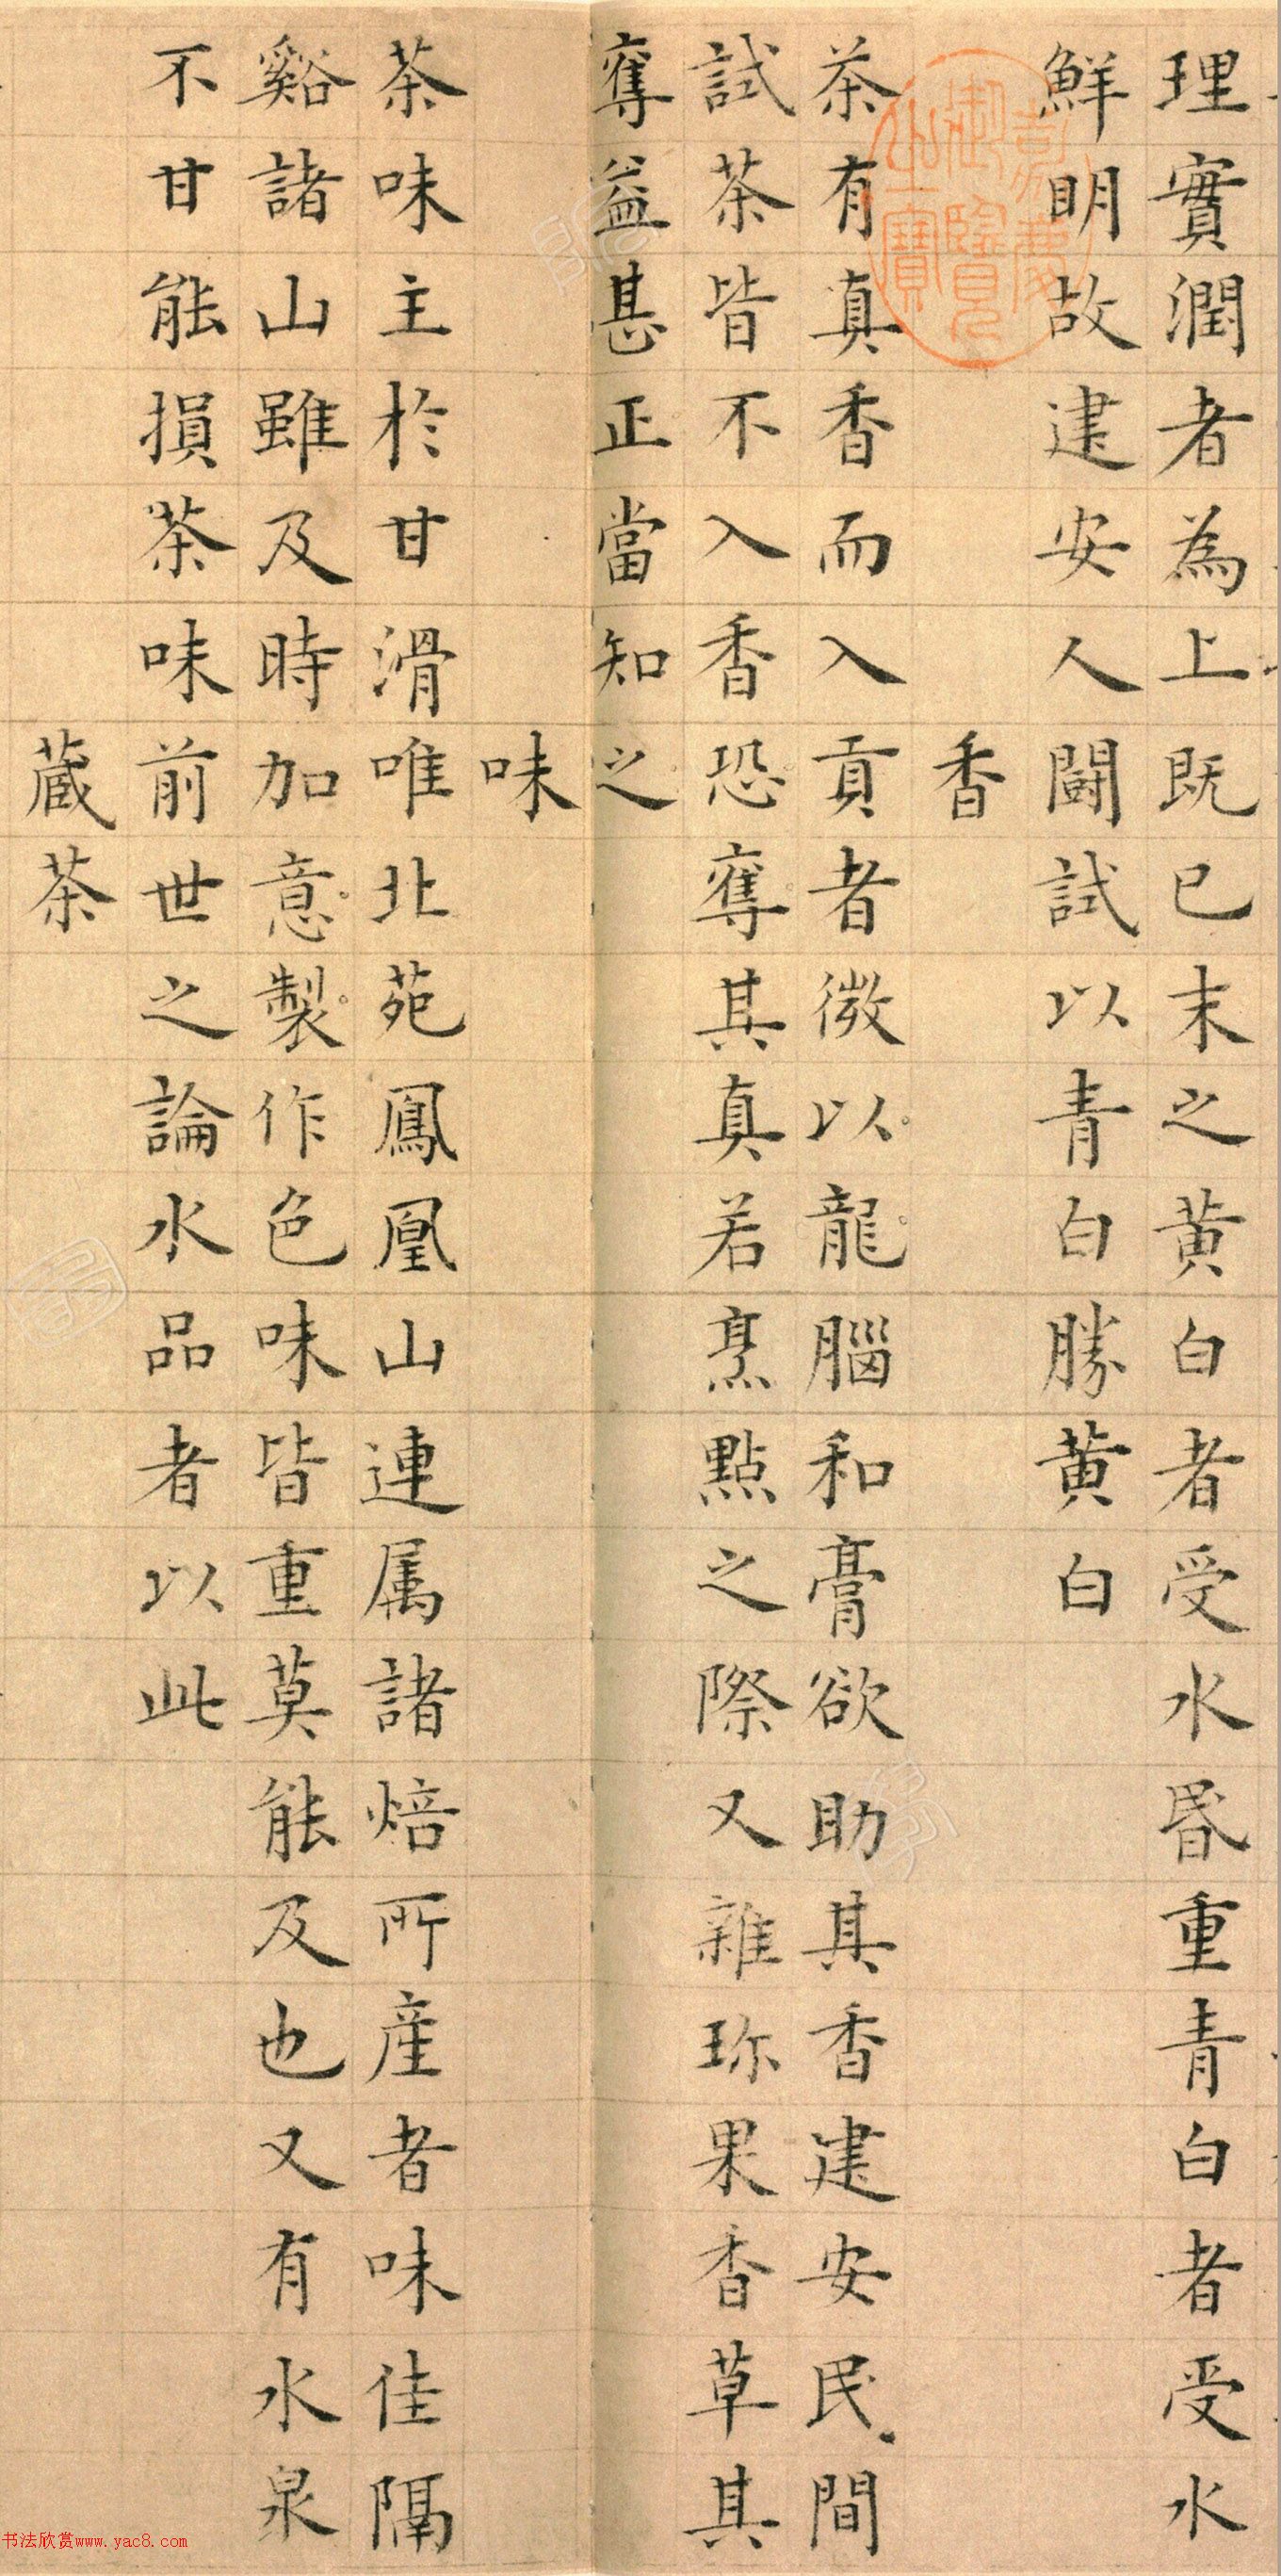 理實潤者為上既已末之黄白者受水昬重青白者受水
鮮明故建安人闘試以青白勝黄白
嘉慶御覽之寶
香
茶有真香而入貢者微以龍腦和膏欲助其香建安民間
試茶皆不入香恐奪其真若烹點之際又雜珎果香草其
奪益甚正當知之
味
茶味主於甘滑唯北苑鳳凰山連属諸焙所産者味佳隔
谿諸山雖及時加意製作色味皆重莫能及也又有水泉
不甘能損茶味前世之論水品者以此
蔵茶
书法欣赏www.yac8.com